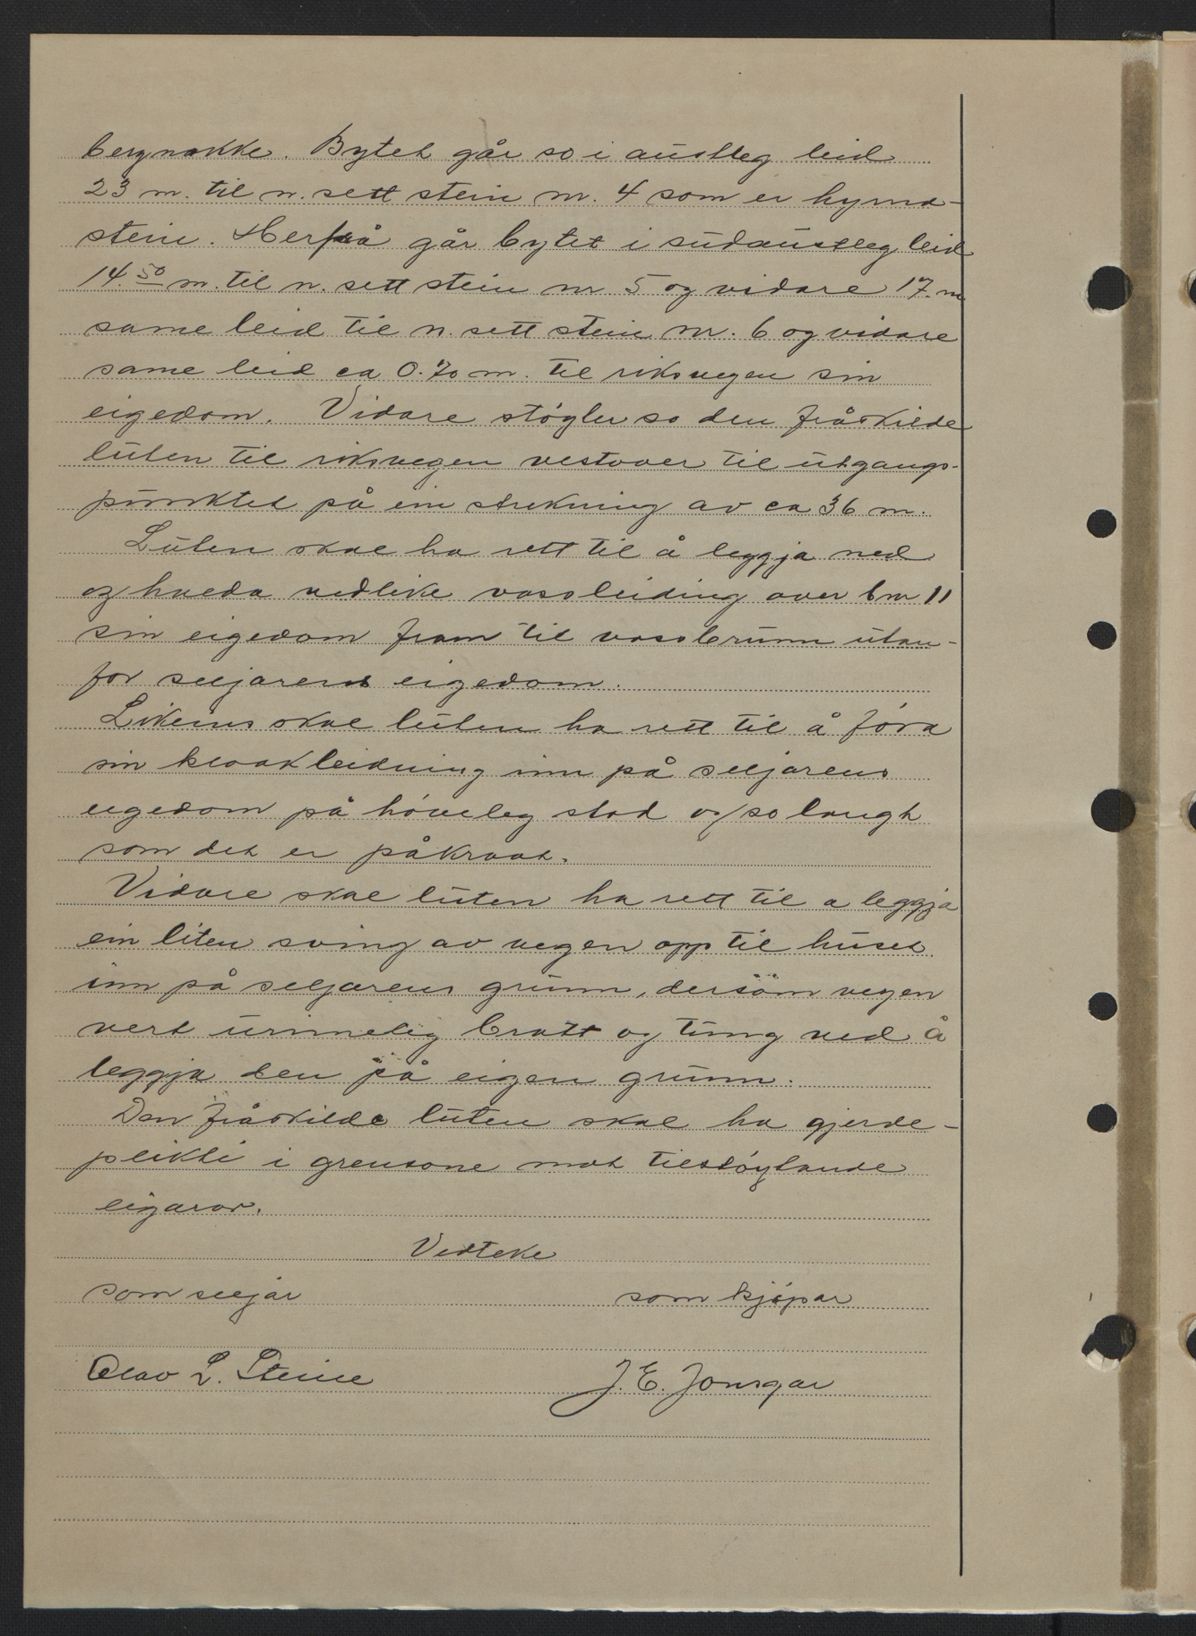 bergnakke. Bytet går so i austleg leid
23 m. til n. sett stein nr. 4 som er hyrna-
stein. Herfrå går bytet i sudaustleg leid
14.50 m. til n. sett stein nr 5 og vidare 17. m
same leid til n. sett stein nr. 6 og vidare
same leid ca 0.70 m. til riksvegen sin
eigedom. Vidare støyter so den fråskilde
luten til riksvegen vestover til utgangs-
punktet på ein strekning av ca 36 m.
Luten skal ha rett til å leggja ned
og halda vedlike vassleiding over bnr 11
sin eigedom fram til vassbrunn utan-
for seljarens eigedom.
Likeins skal luten ha rett til å föra
sin kloakleidning inn på seljarens
eigedom på höveleg stad og so langt
som det er påkravt.
Vidare skal luten ha rett til a leggja
ein liten sving av vegen opp til huset
inn på seljarens grunn, dersom vegen
vert urimelig bratt og tung ved å
leggja den på eigen grunn.
Den fråskilde luten skal ha gjerde-
plikti i grensone mot tilstøytande
eigarar.
Vedteke
som seljar som kjöpar
Olav L. Steine J. E. Jonsgar